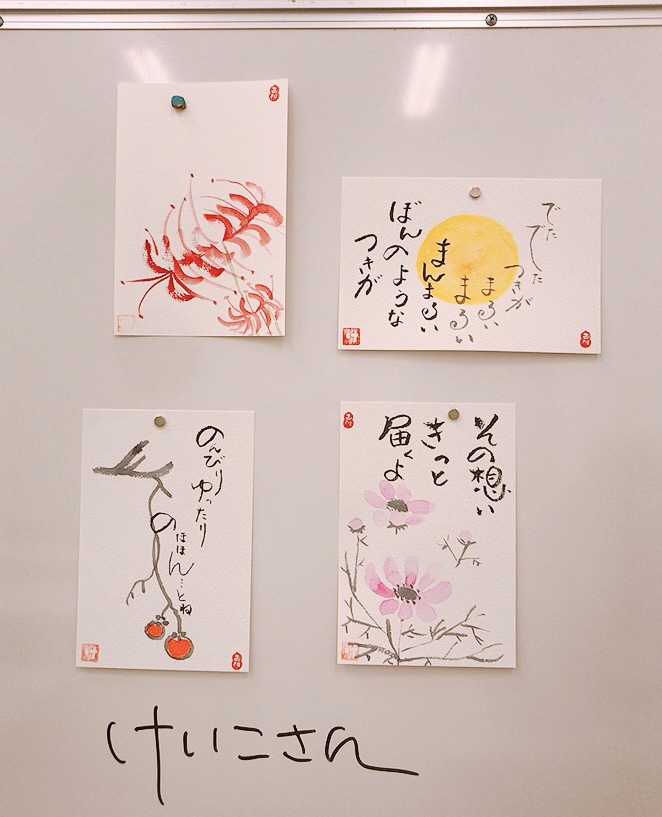 でた
でした
つきが
まるい
まるい
まんまるい
ぼんのような
つきが
のんびり
ゆったり
のほほん…とね
その想い
きっと
届くよ
けいこさん